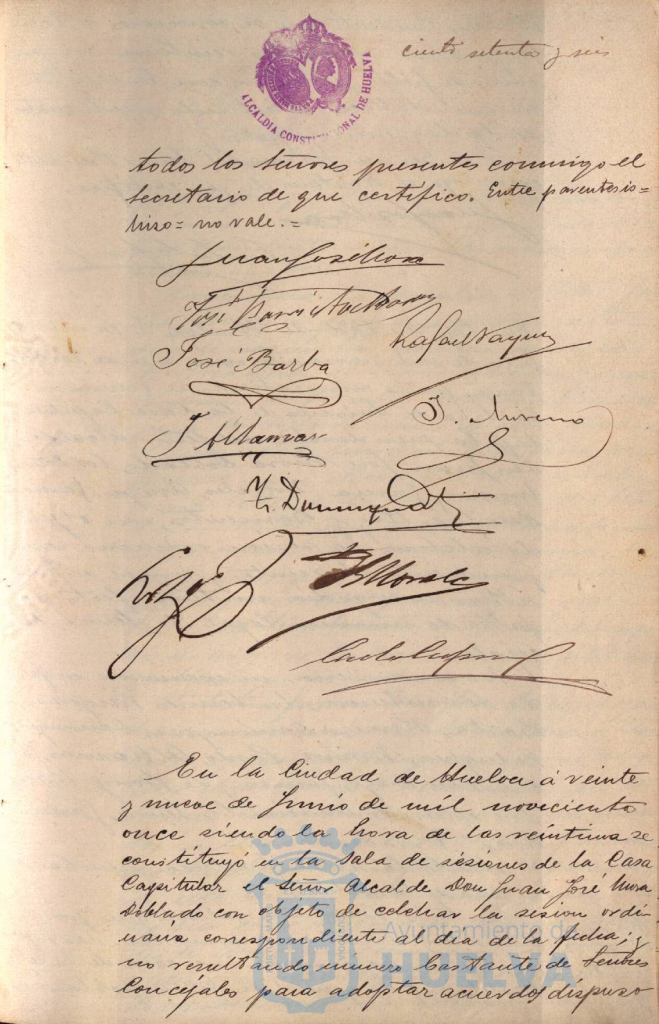 ciento setenta y seis
ALCALDIA CONSTITUCIONAL DE HUELVA
todos los Señores presentes conmigo el
secretario de que certifico. Entre parentesis=
hizo= no vale.=
Juan José Mora
José
Rafael Vazquez
José Barba
J. Moreno
T. Dominguez
Morales
En la Ciudad de Huelva á veinte
y nueve de Junio de mil novecientos
once siendo la hora de las veintiuna se
constituyó en la sala de sesiones de la Casa
Capitular el Señor Alcalde Don Juan José Mora
Doblado con objeto de celebrar la sesion ordi-
naria correspondiente al dia de la fecha; y
no resultando numero bastante de Señores
Concejales para adoptar acuerdos dispuso
Ayuntamiento de
HUELVA